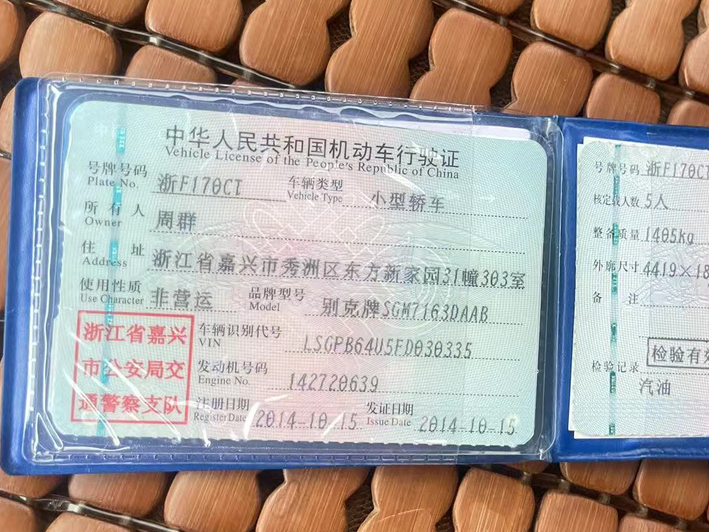 中华人民共和国机动车行驶证
Vehicle License of the People's Republic of China
号牌号码 浙F170CT 车辆类型 小型轿车
Plate No. Vehicle Type
所有人 周群
Owner
住址 浙江省嘉兴市秀洲区东方新家园31幢303室
Address
使用性质 非营运 品牌型号 别克牌SGM7163DAAB
Use Character Model
浙江省嘉兴
市公安局交
通警察支队
车辆识别代号 LSGPB64U5FD030335
VIN
发动机号码 142720639
Engine No.
注册日期 2014-10-15 发证日期 2014-10-15
Register Date Issue Date
号牌号码 浙F170CT
核定载人数 5人
整备质量 1405kg
外廓尺寸 4419×18
备注
检验有效
检验记录
汽油